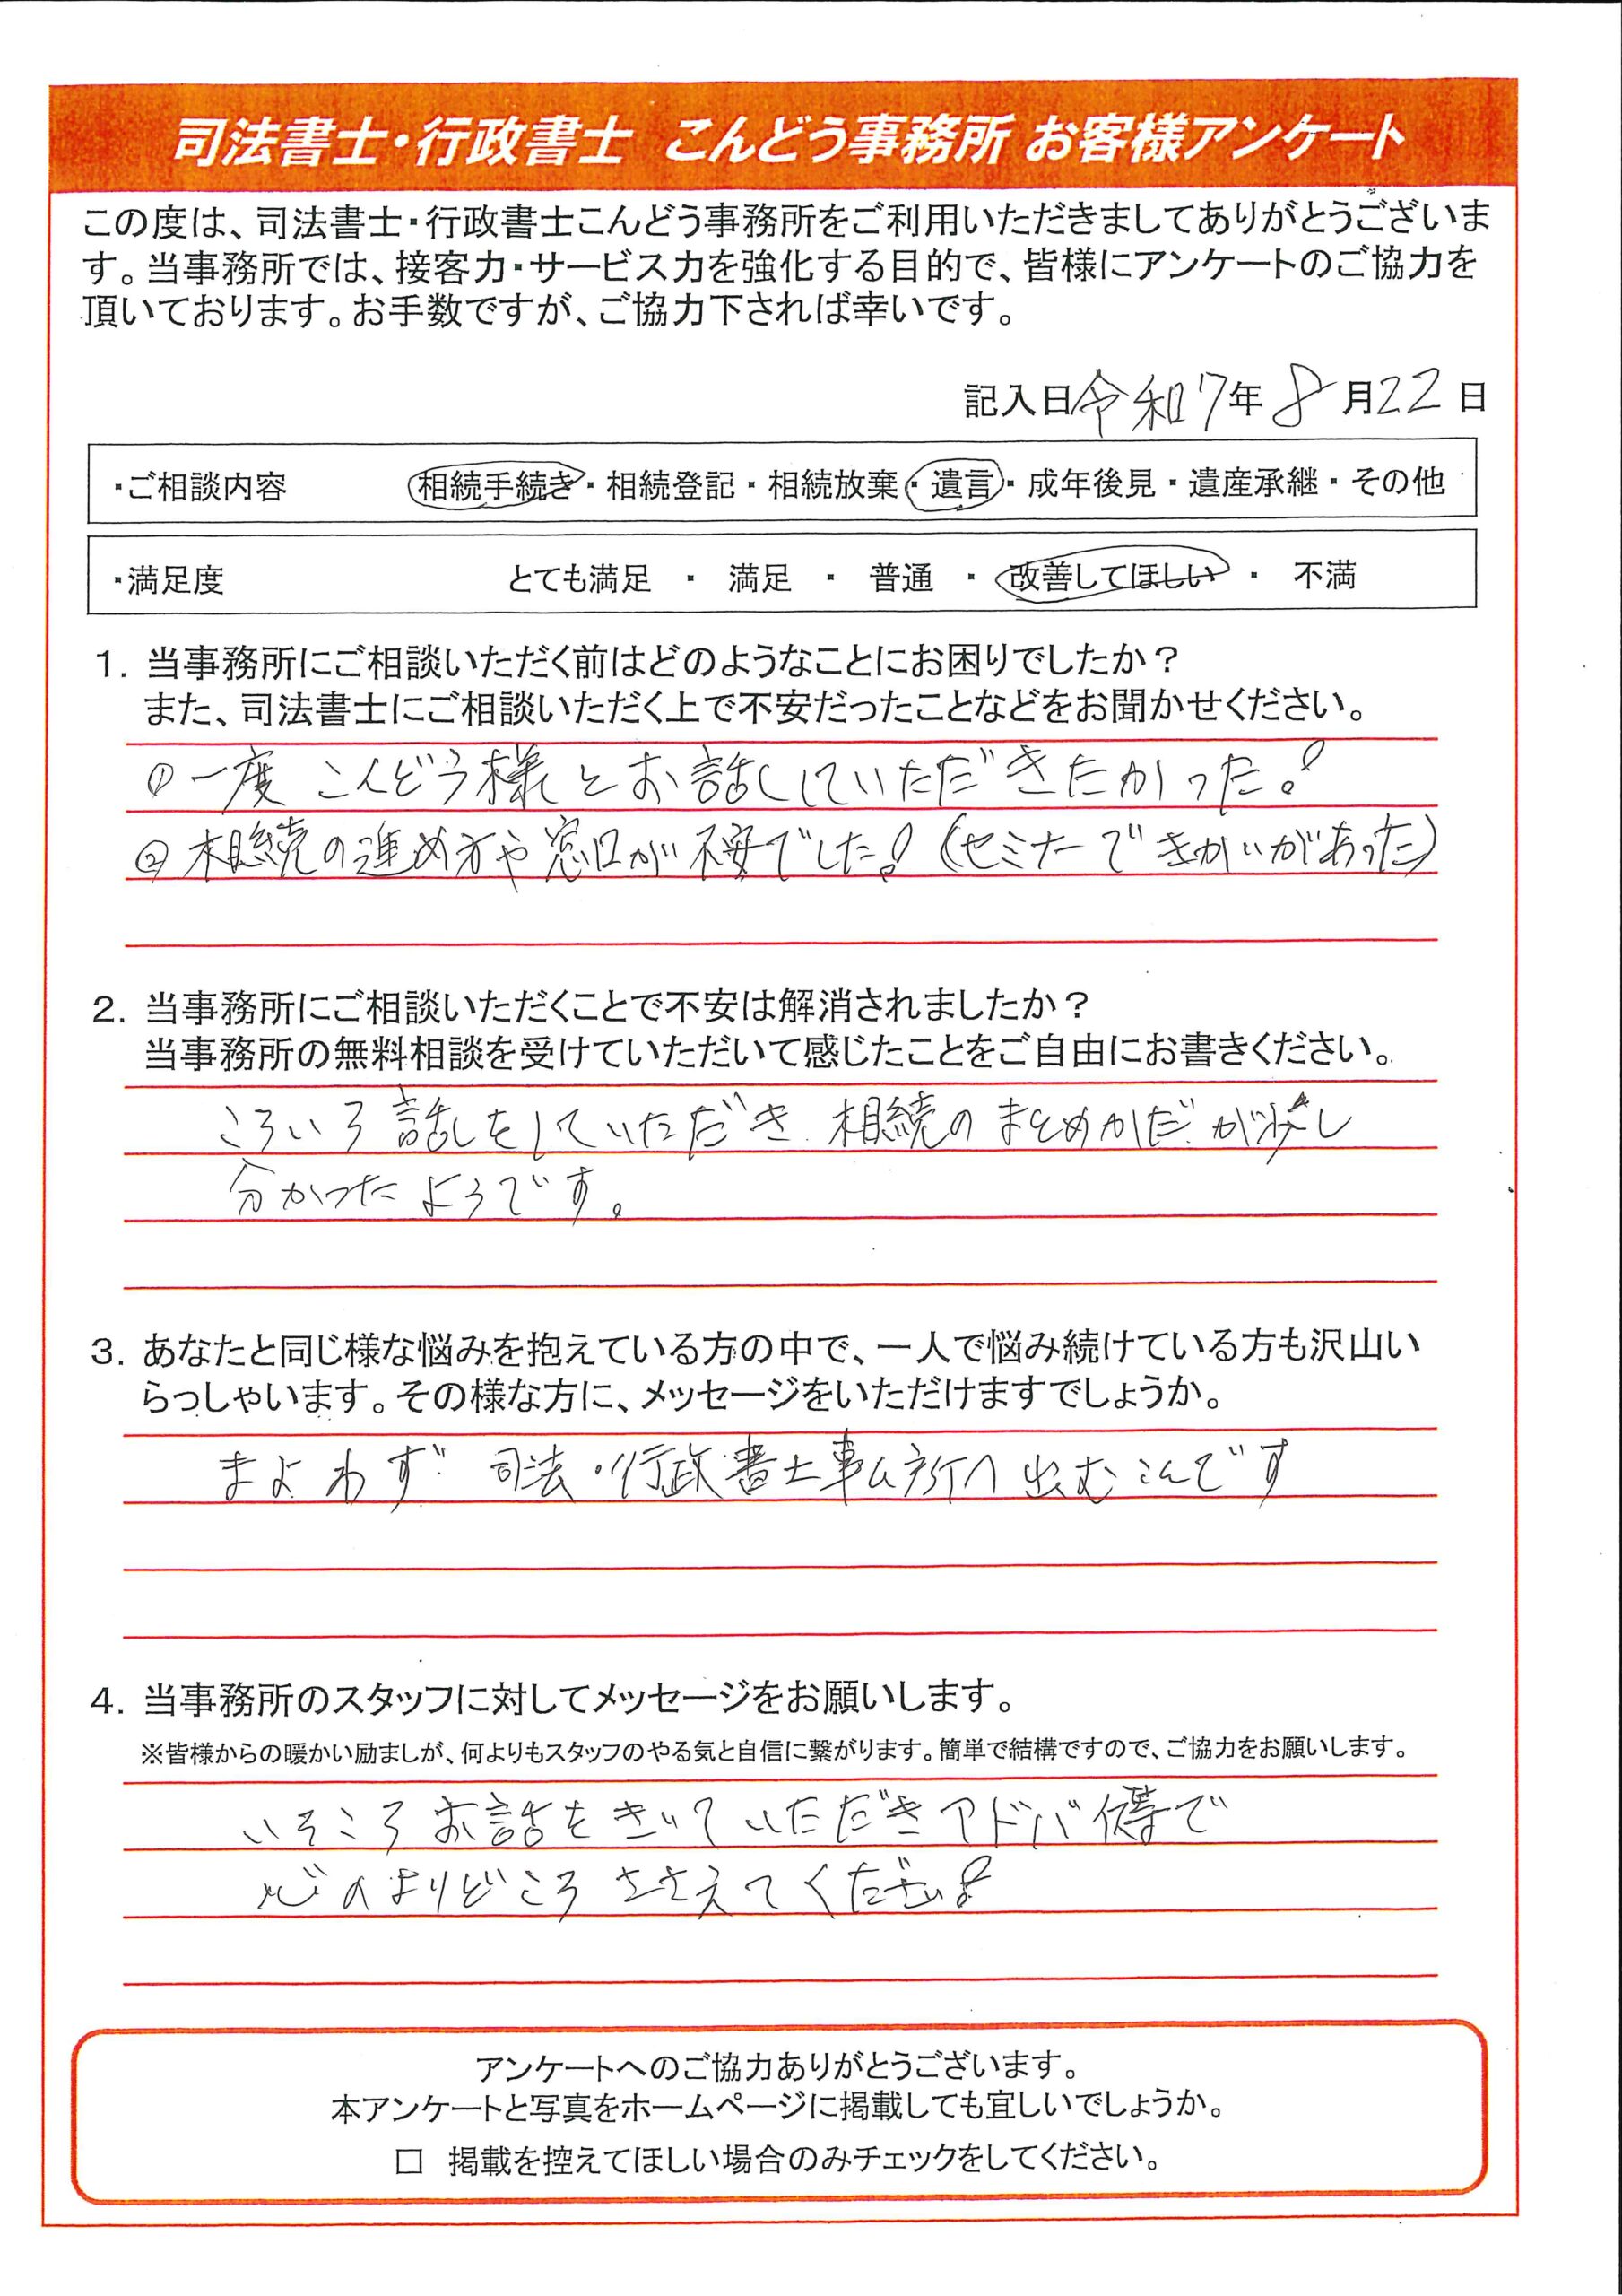 司法書士・行政書士 こんどう事務所 お客様アンケート
この度は、司法書士・行政書士こんどう事務所をご利用いただきましてありがとうございま
す。当事務所では、接客力・サービス力を強化する目的で、皆様にアンケートのご協力を
頂いております。お手数ですが、ご協力下されば幸いです。
記入日 令和7年 8月22日
・ご相談内容 相続手続き・相続登記・相続放棄・遺言・成年後見・遺産承継・その他
・満足度 とても満足 ・ 満足 ・ 普通 ・ 改善してほしい ・ 不満
1. 当事務所にご相談いただく前はどのようなことにお困りでしたか?
また、司法書士にご相談いただく上で不安だったことなどをお聞かせください。
①一度 こんどう様とお話ししていただきたかった!
②相続の進め方や窓口が不安でした!(セミナーできかいがあった)
2. 当事務所にご相談いただくことで不安は解消されましたか?
当事務所の無料相談を受けていただいて感じたことをご自由にお書きください。
話しをしていただき 相続のまとめかだが少し
分かったようです。
3. あなたと同じ様な悩みを抱えている方の中で、一人で悩み続けている方も沢山い
らっしゃいます。その様な方に、メッセージをいただけますでしょうか。
まよわず 司法・行政書士事ム所へ 出むこんです
4. 当事務所のスタッフに対してメッセージをお願いします。
※皆様からの暖かい励ましが、何よりもスタッフのやる気と自信に繋がります。簡単で結構ですので、ご協力をお願いします。
お話をきいていただきアドバ等で
心のよりどころ ささえてください!
アンケートへのご協力ありがとうございます。
本アンケートと写真をホームページに掲載しても宜しいでしょうか。
□ 掲載を控えてほしい場合のみチェックをしてください。